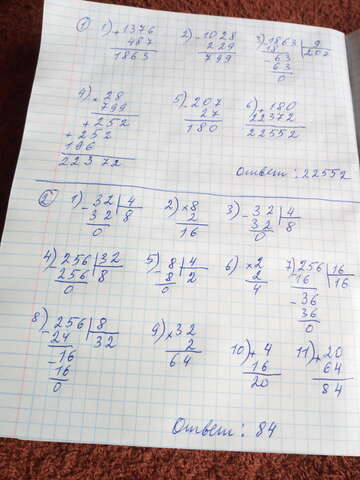 ① 1) + 1376 2) - 1028 3) 1863 | 9
487 229 18 | 207
1863 799 - 63
63
0
4) × 28 5) - 207 6) + 180
799 27 22372
+ 252 180 22552
+ 252
196
22372 Ответ: 22552
② 1) - 32 | 4 2) × 8 3) - 32 | 4
32 | 8 2 32 | 8
0 16 0
4) - 256 | 32 5) - 8 | 4 6) × 2 7) 256 | 16
256 | 8 8 | 2 2 16 | 16
0 0 4 - 36
36
0
8) - 256 | 8 9) × 32 10) + 4 11) + 20
24 | 32 2 16 64
- 16 64 20 84
16
0
Ответ: 84